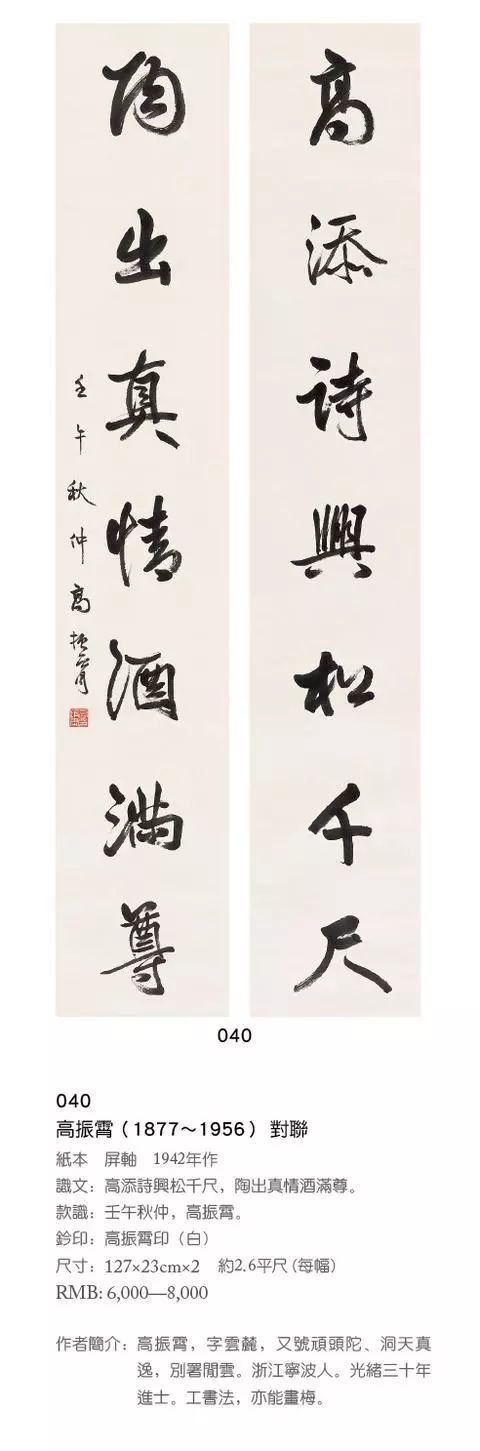 高添詩興松千尺
陶出真情酒滿尊
壬午秋仲高振霄
040
040
高振霄（1877～1956） 對聯
紙本　屏軸　1942年作
識文：高添詩興松千尺，陶出真情酒滿尊。
款識：壬午秋仲，高振霄。
鈐印：高振霄印（白）
尺寸：127×23cm×2　約2.6平尺（每幅）
RMB: 6,000—8,000
作者簡介：高振霄，字雲麓，又號頑頭陀、洞天真
逸，別署閒雲。浙江寧波人。光緒三十年
進士。工書法，亦能畫梅。